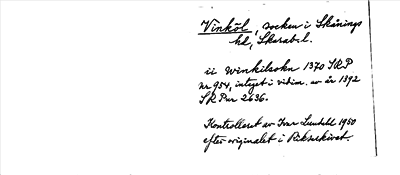 Vinköl, socken i Skånings
hd, Skarab. l.
ii winkilsokn 1370 SRP
nr 954, intaget i vidim. av år 1392
SRP nr 2636.
Kontrollerat av Ivar Lundahl 1950
efter originalet i Riksarkivet.